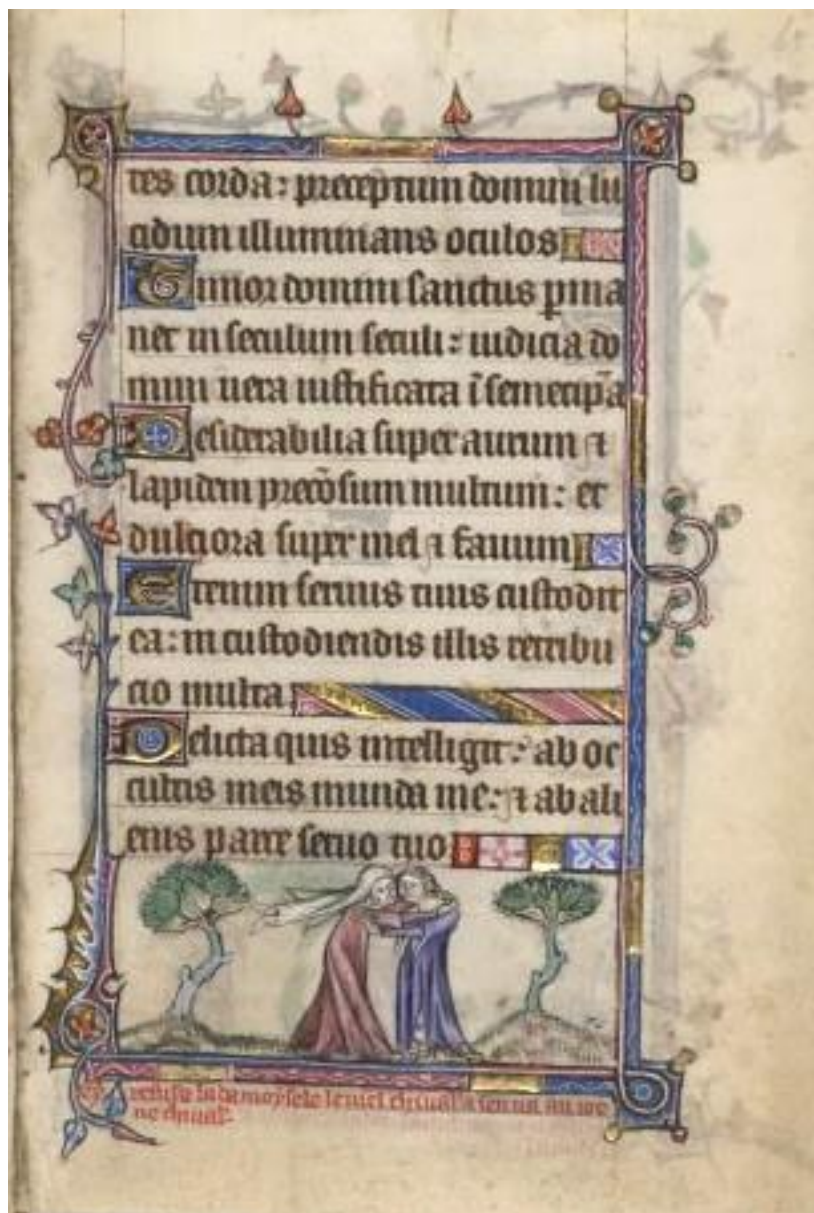 tes corda: preceptum domini lu
cidum illuminans oculos
Timor domini sanctus pma
net in seculum seculi: iudicia do
mini uera iustificata i semetipa
Desiderabilia super aurum ⁊
lapidem preciosum multum: et
dulciora super mel ⁊ fauum
Etenim seruus tuus custodit
ea: in custodiendis illis retribu
cio multa
Delicta quis intelligit: ab oc
cultis meis munda me: ⁊ ab ali
enis parce seruo tuo
la damoysele le viel